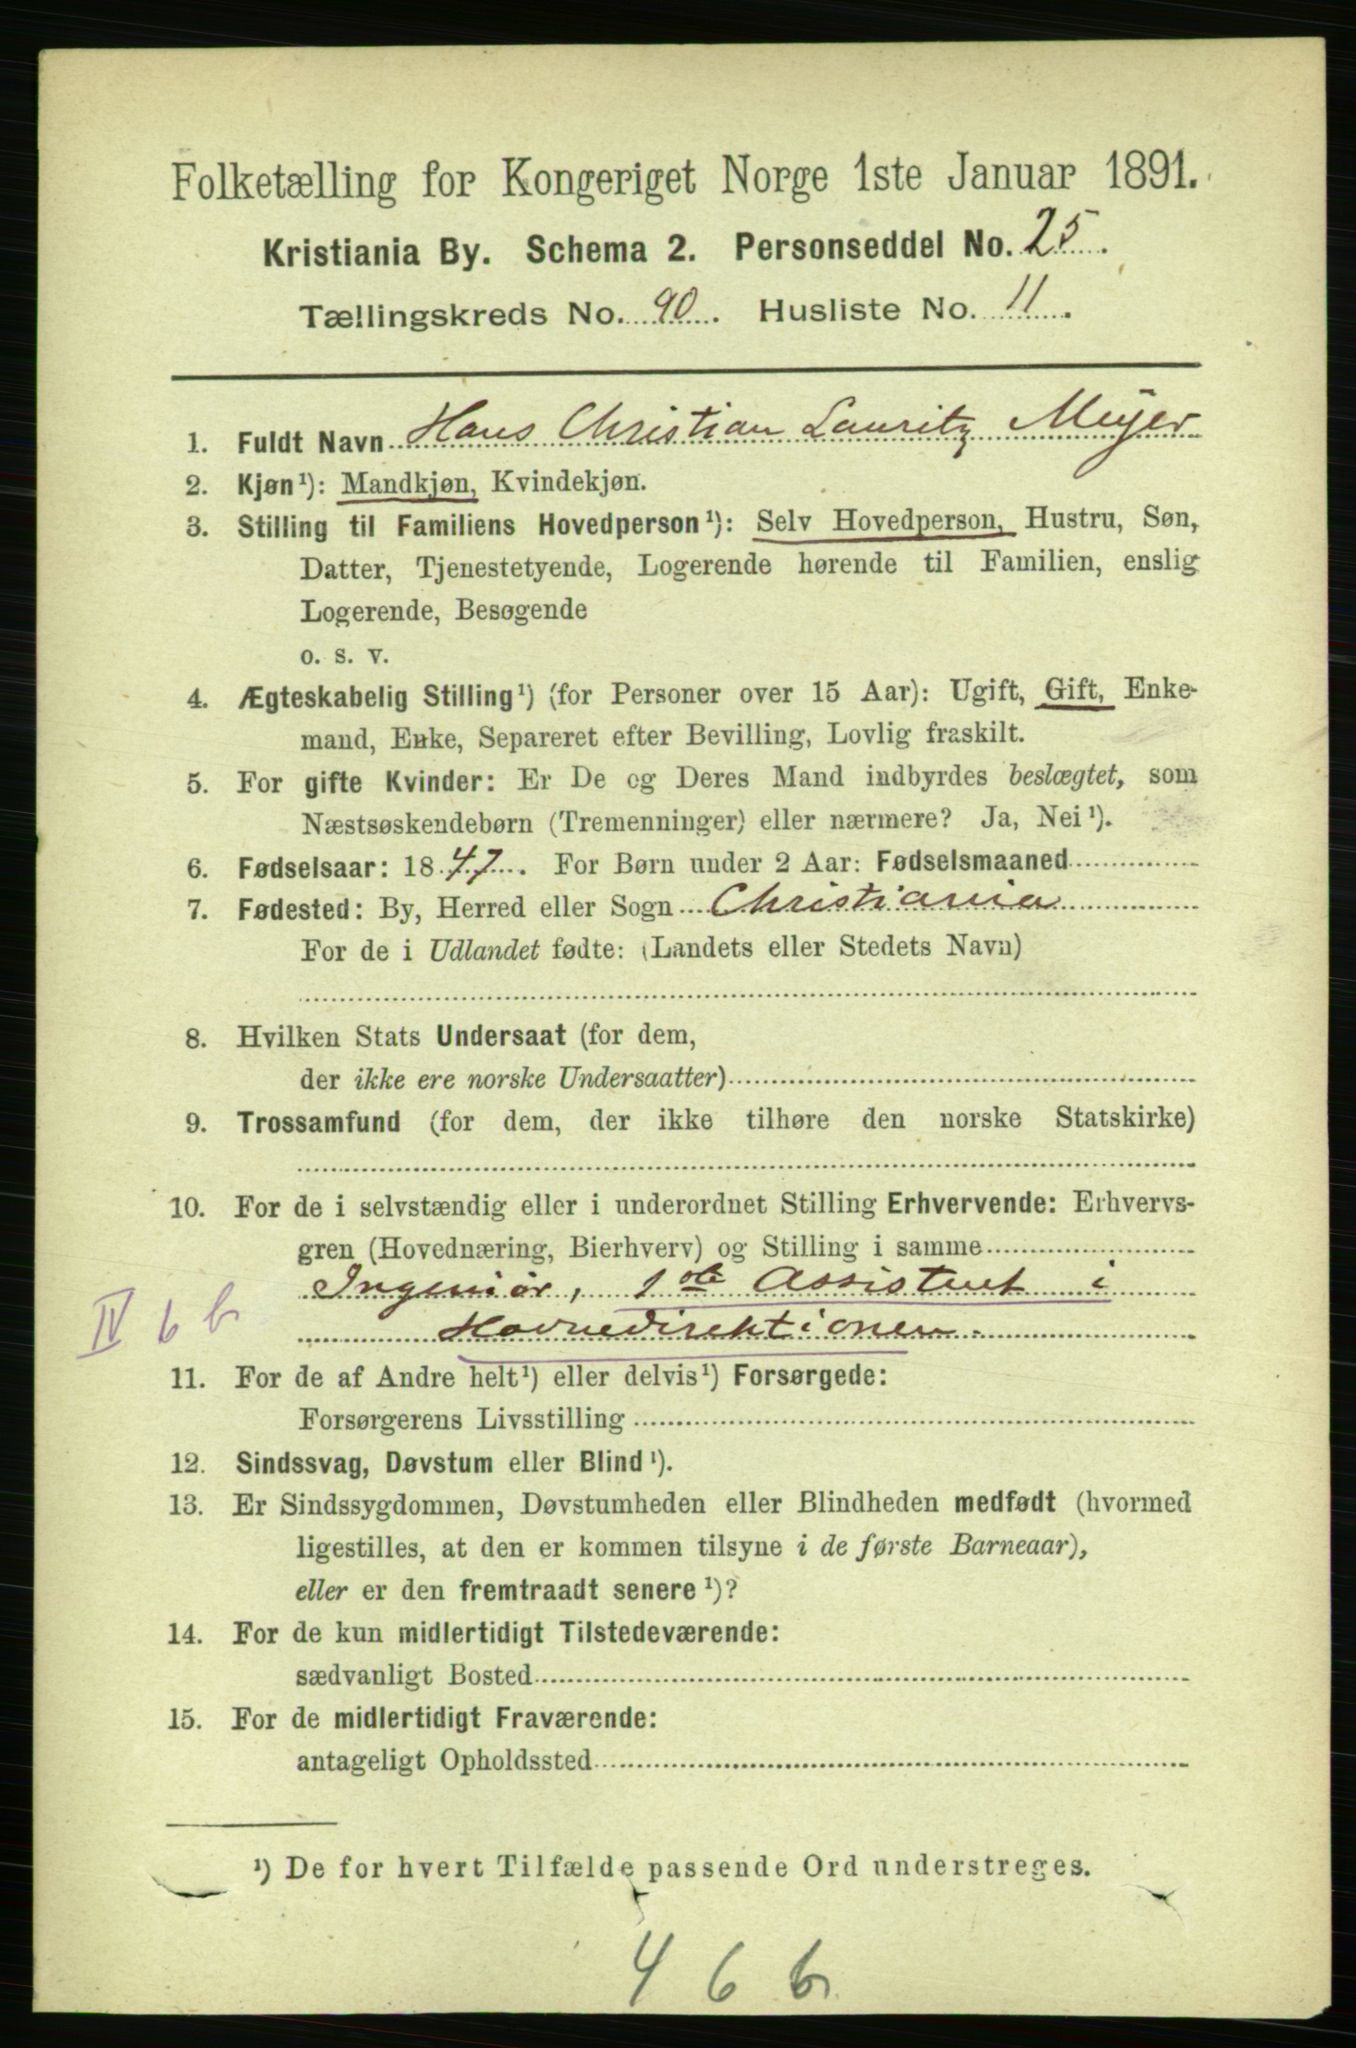 Folketælling for Kongeriget Norge 1ste Januar 1891.
Kristiania By. Schema 2. Personseddel No. 25.
Tællingskreds No. 90. Husliste No. 11.
1. Fuldt Navn Hans Christian Lauritz Meyer
2. Kjøn¹): Mandkjøn, Kvindekjøn.
3. Stilling til Familiens Hovedperson¹): Selv Hovedperson, Hustru, Søn,
Datter, Tjenestetyende, Logerende hørende til Familien, enslig
Logerende, Besøgende
o. s. v.
4. Ægteskabelig Stilling¹) (for Personer over 15 Aar): Ugift, Gift, Enke-
mand, Enke, Separeret efter Bevilling, Lovlig fraskilt.
5. For gifte Kvinder: Er De og Deres Mand indbyrdes beslægtet, som
Næstsøskendebørn (Tremenninger) eller nærmere? Ja, Nei¹).
6. Fødselsaar: 1847. For Børn under 2 Aar: Fødselsmaaned
7. Fødested: By, Herred eller Sogn Christiania
For de i Udlandet fødte: (Landets eller Stedets Navn)
8. Hvilken Stats Undersaat (for dem,
der ikke ere norske Undersaatter)
9. Trossamfund (for dem, der ikke tilhøre den norske Statskirke)
10. For de i selvstændig eller i underordnet Stilling Erhvervende: Erhvervs-
gren (Hovednæring, Bierhverv) og Stilling i samme
Ingeniør, 1ste Assistent i
IV 6 b Havnedirektionen.
11. For de af Andre helt¹) eller delvis¹) Forsørgede:
Forsørgerens Livsstilling
12. Sindssvag, Døvstum eller Blind¹).
13. Er Sindssygdommen, Døvstumheden eller Blindheden medfødt (hvormed
ligestilles, at den er kommen tilsyne i de første Barneaar),
eller er den fremtraadt senere¹)?
14. For de kun midlertidigt Tilstedeværende:
sædvanligt Bosted
15. For de midlertidigt Fraværende:
antageligt Opholdssted
¹) De for hvert Tilfælde passende Ord understreges.
4 6 b